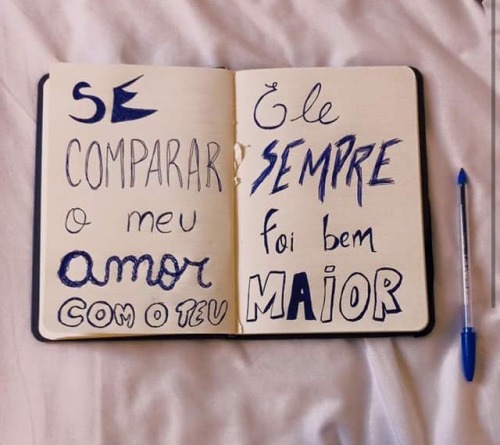 SE
COMPARAR
o meu
amor
COM O TEU
Ele
SEMPRE
foi bem
MAiOR